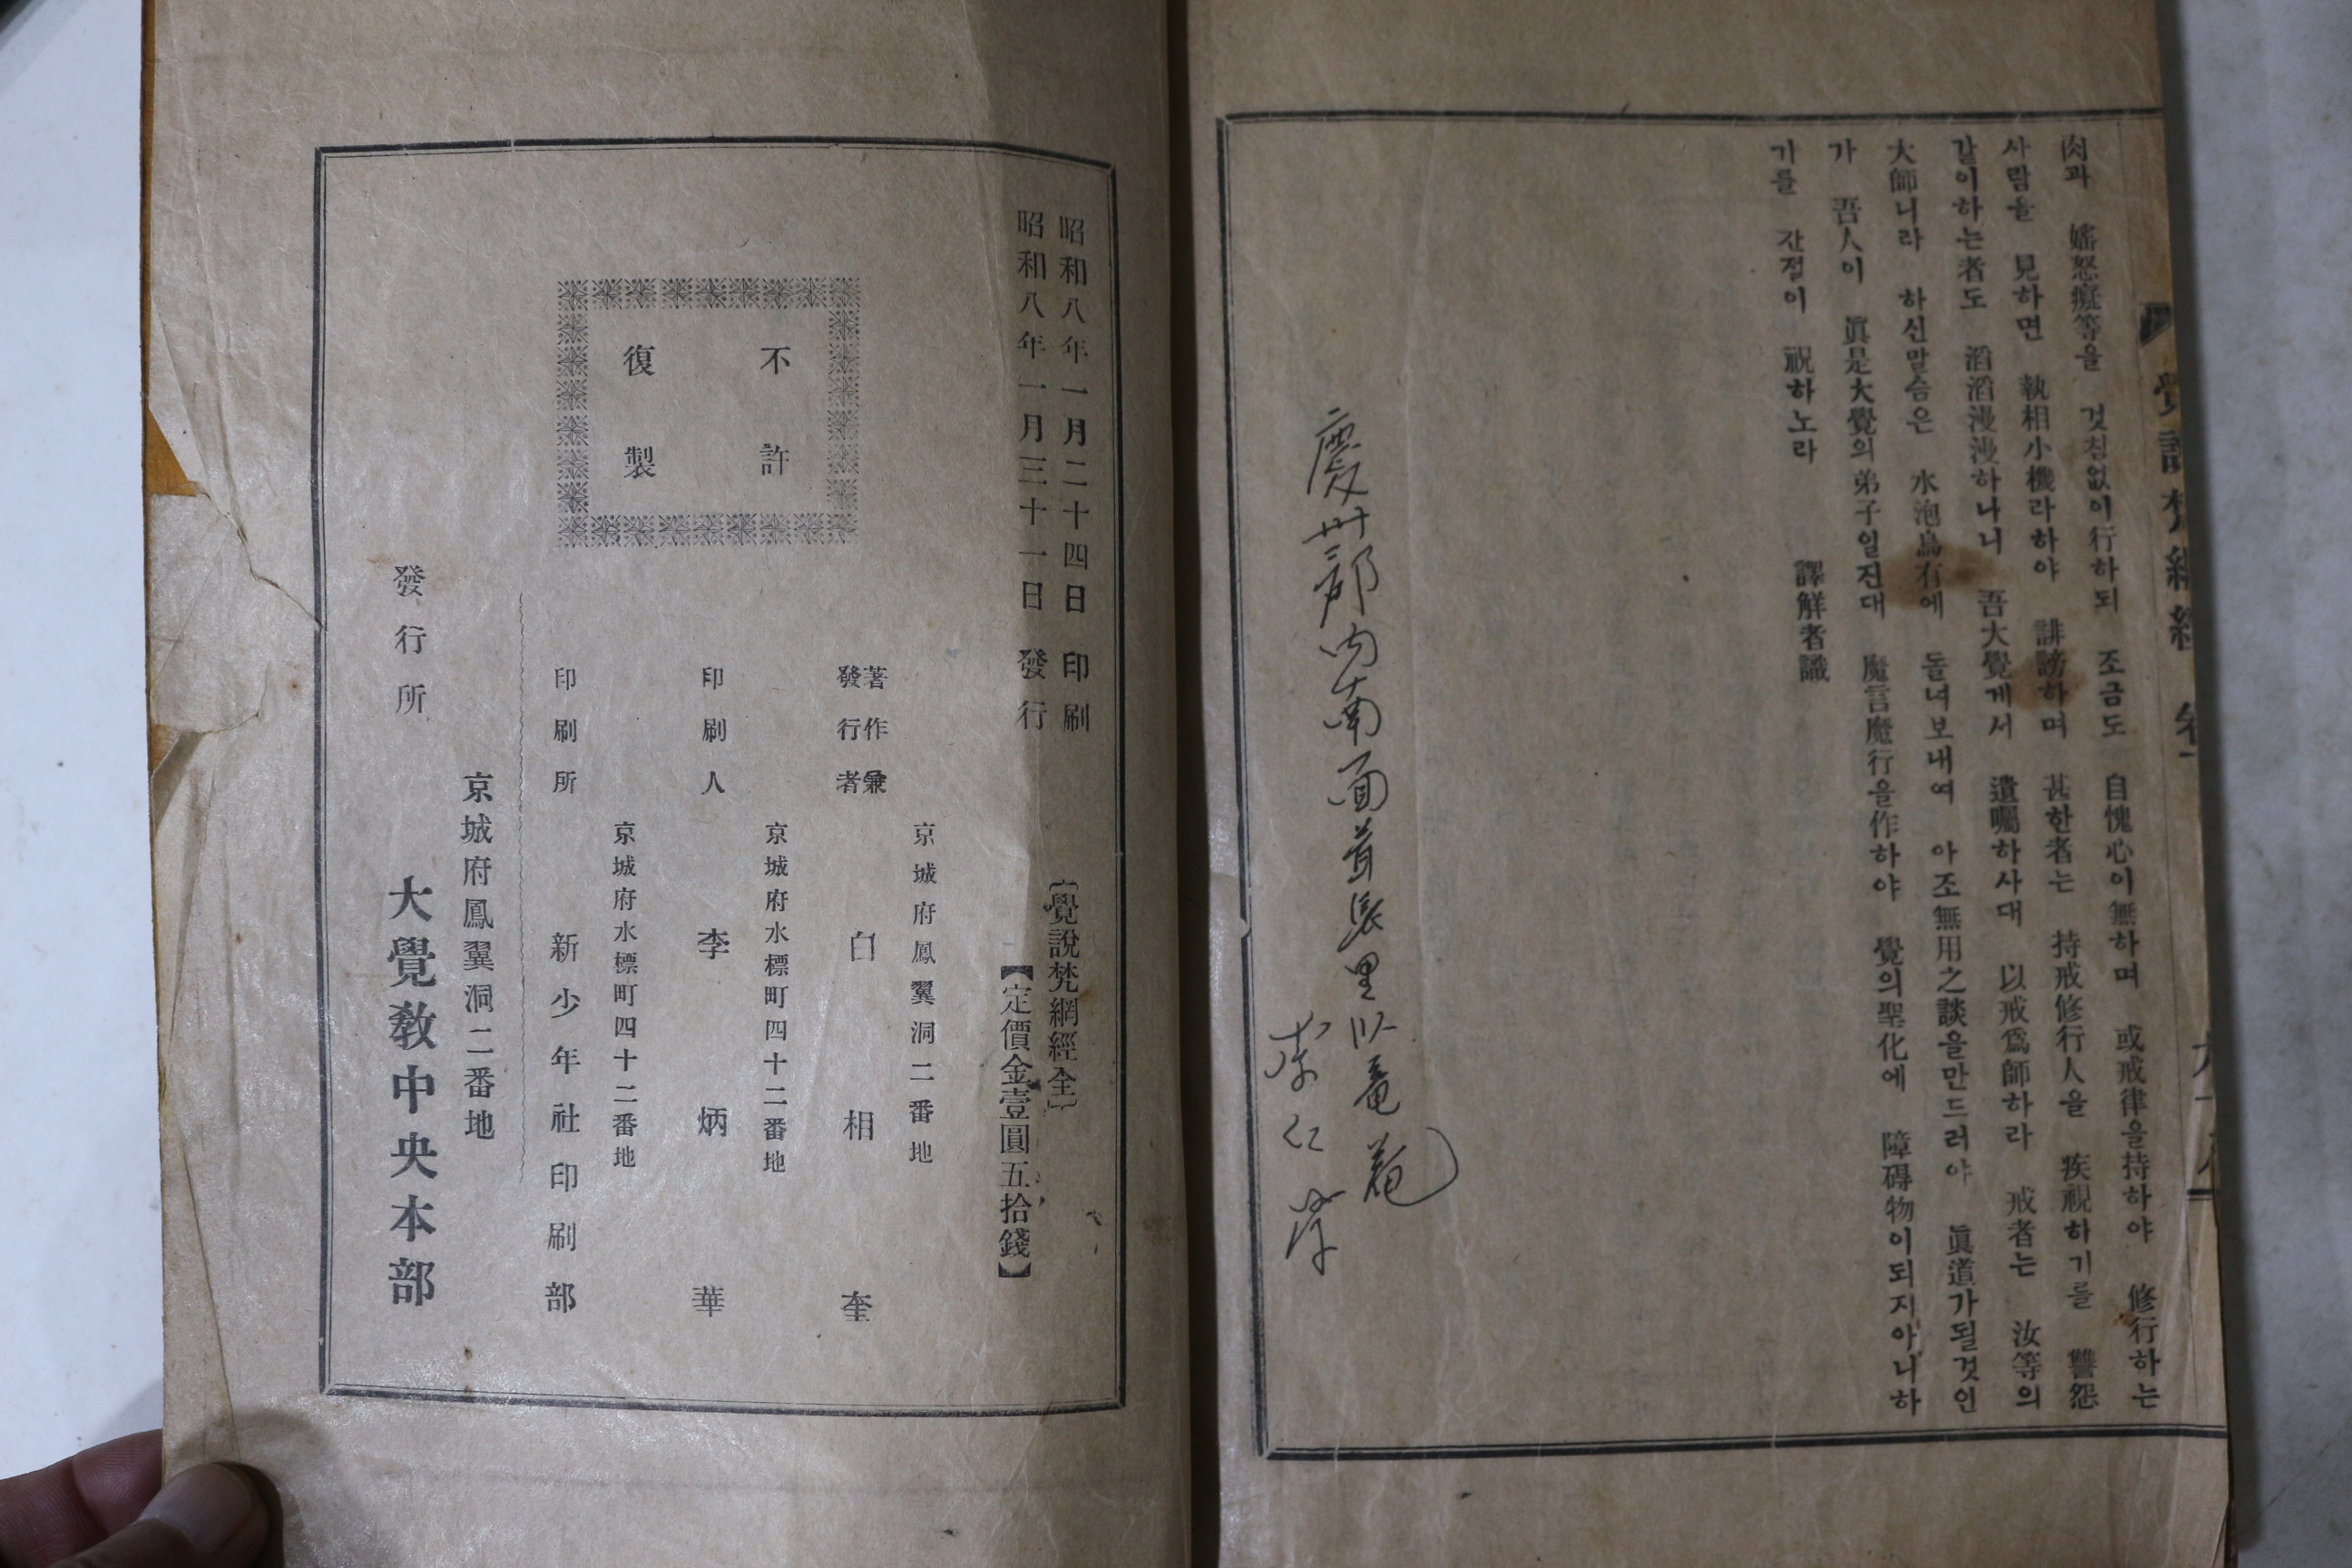 肉과 婬怒癡等을 것침없이行하되 조금도 自愧心이無하며 或戒律을持하야 修行하는
사람을 見하면 執相小機라하야 誹謗하며 甚한者는 持戒修行人을 疾視하기를 讐怨
갈이하는者도 滔滔漫漫하나니 吾大覺게서 遺囑하사대 以戒爲師하라 戒者는 汝等의
大師니라 하신말슴은 水泡烏有에 돌녀보내여 아조無用之談을만드러야 眞道가될것인
가 吾人이 眞是大覺의弟子일진대 魔言魔行을作하야 覺의聖化에 障碍物이되지아니하
기를 간절이 祝하노라 譯解者識
慶州郡內南面
昭和八年一月二十四日 印刷
昭和八年一月三十一日 發行
{覺說梵網經全}
【定價金壹圓五拾錢】
不許
復製
京城府鳳翼洞二番地
著作兼
發行者 白相奎
京城府水標町四十二番地
印刷人 李炳華
京城府水標町四十二番地
印刷所 新少年社印刷部
京城府鳳翼洞二番地
發行所 大覺敎中央本部